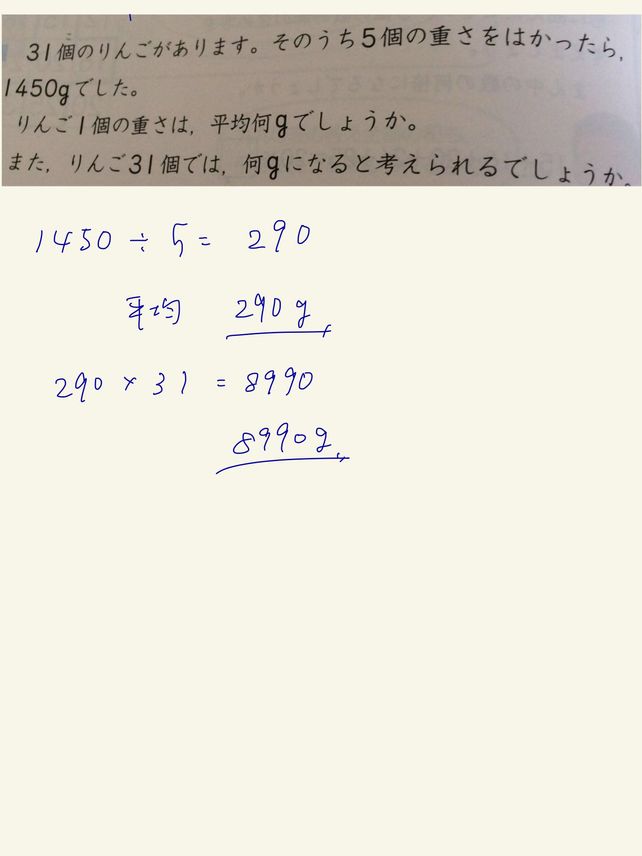 31個のりんごがあります。そのうち5個の重さをはかったら,
1450gでした。
りんご1個の重さは,平均何gでしょうか。
また,りんご31個では,何gになると考えられるでしょうか。
1450 ÷ 5 = 290
平均 290g
290 × 31 = 8990
8990g